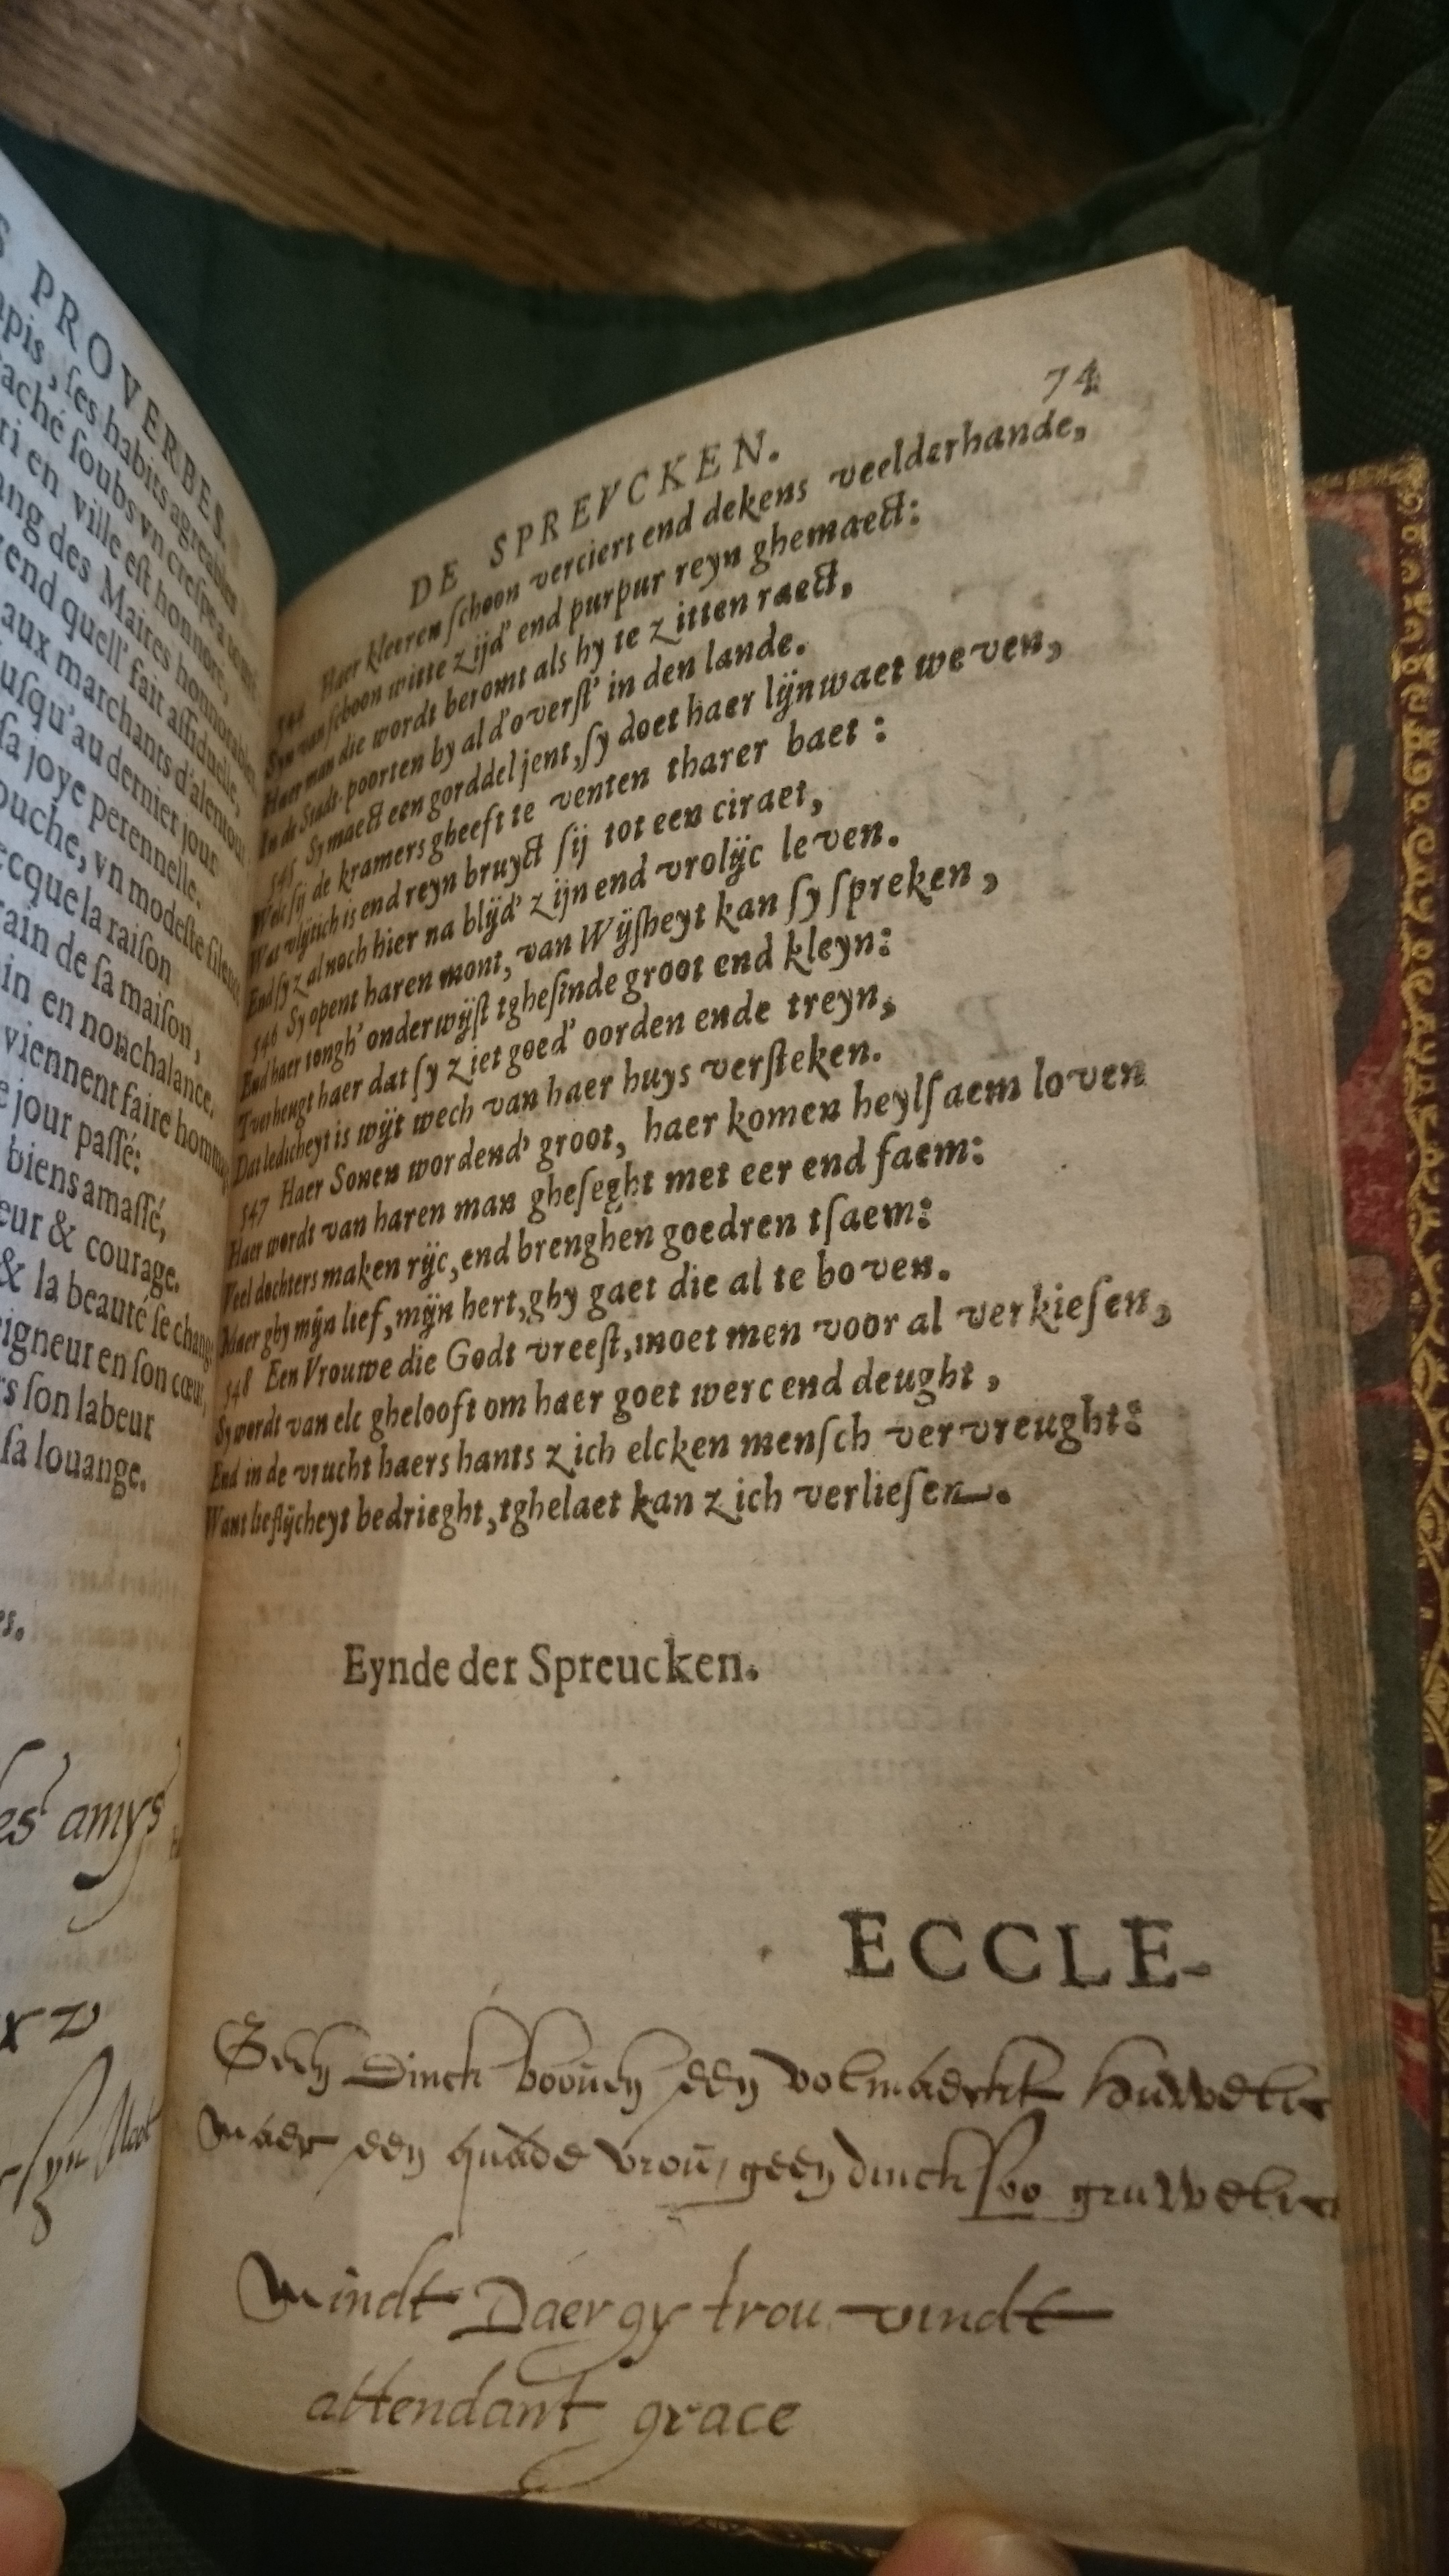 S PROVERBES.
apis, ſes habits agreables
aché ſoubs vn creſpe a
ri en ville eſt honnoré,
ang des Maires honnorables
vend quell' fait aſſiduelle,
aux marchants d'alentour
uſqu'au dernier jour
ſa joye perennelle.
ouche, vn modeſte ſilence
ecque la raiſon
rain de ſa maiſon,
in en nonchalance.
viennent faire homma
e jour paſſé:
biens amaſſé,
eur & courage.
& la beauté ſe change
eigneur en ſon cœur,
rs ſon labeur
ſa louange.
es.
es amys
xv
ſyn
74
DE SPREVCKEN.
544 Haer kleeren ſchoon verciert end dekens veelderhande,
Syn van ſchoon witte zijd' end purpur reyn ghemaect:
Haer man die wordt beromt als hy te zitten raect,
In de Stadt-poorten by al d'overſt' in den lande.
545 Sy maect een gorddel jent, ſy doet haer lijnwaet weven,
Welc ſij de kramers gheeft te venten tharer baet:
War vlijtich is end reyn bruyct ſij tot een ciraet,
End ſy zal noch hier na blijd' zijn end vrolijc leven.
546 Sy opent haren mont, van Wijſheyt kan ſy ſpreken,
End haer tongh' onderwijſt tgheſinde groot end kleyn:
T verheugt haer dat ſy ziet goed' oorden ende treyn,
Dat ledicheyt is wijt wech van haer huys verſteken.
547 Haer Sonen wordend' groot, haer komen heylſaem loven
Haer wordt van haren man gheſeght met eer end faem:
Veel dochters maken rijc, end brenghen goedren tſaem:
Maer ghy mijn lief, mijn hert, ghy gaet die al te boven.
548 Een Vrouwe die Godt vreeſt, moet men voor al verkieſen,
Sy wordt van elc ghelooft om haer goet werc end deught,
End in de vrucht haers hants zich elcken menſch vervreught:
Want lieflijcheyt bedrieght, tghelaet kan zich verlieſen.
Eynde der Spreucken.
ECCLE-
Geen dinck boůen een volmaeckt huwelic
maer een quade vroů, geen dinck ſoo gruwelic
Mindt Daer gy trou vindt
attendant grace